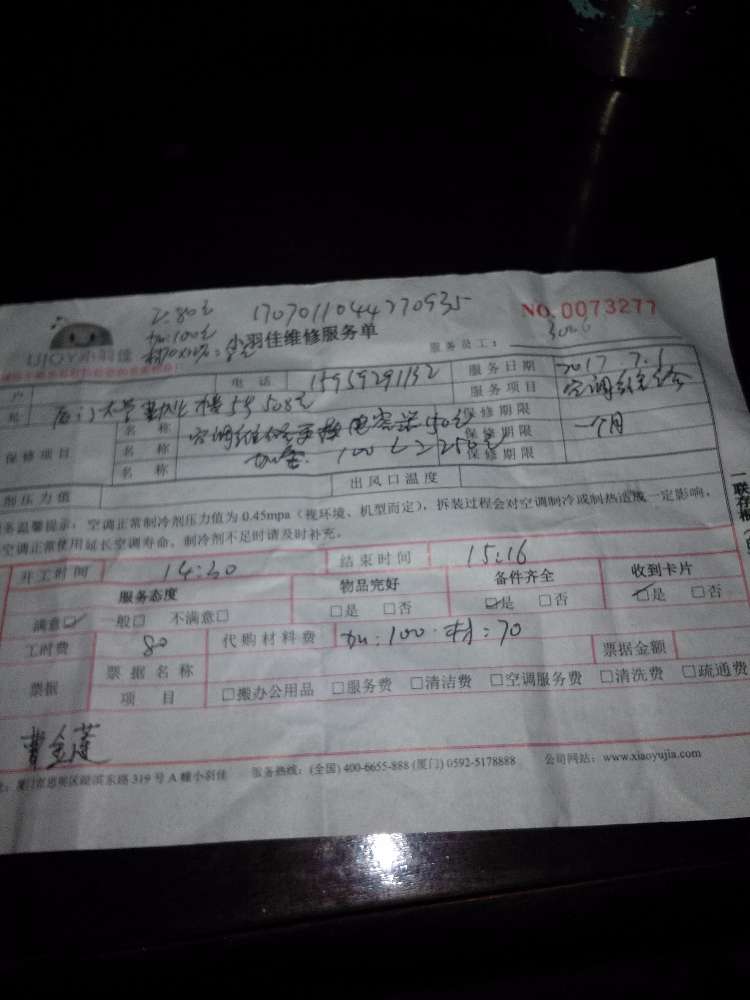 工:80元 1707011044270935 NO.0073277
加:100元
UJOY小羽佳 小羽佳维修服务单 服务员工:
户 电话 15959291132 服务日期 2017.7.1
厦门大学勤业楼 508 服务项目 空调维修
保修项目 名称 空调维修更换电容 保修期限
名称 保修期限 一个月
名称 保修期限
剂压力值 出风口温度
务温馨提示:空调正常制冷剂压力值为0.45mpa(视环境、机型而定),拆装过程会对空调制冷或制热造成一定影响,
空调正常使用延长空调寿命,制冷剂不足时请及时补充。
开工时间 14:30 结束时间 15:16
服务态度 物品完好 备件齐全 收到卡片
满意☑ 一般□ 不满意□ □是 □否 ☑是 □否 ☑是 □否
工时费 80 代购材料费 加:100·材:70 票据金额
票据 票据名称
项目 □搬办公用品 □服务费 □清洁费 □空调服务费 □清洗费 □疏通费
曹金莲
厦门市思明区湖滨东路319号A幢小羽佳 服务热线:(全国)400-6655-888(厦门)0592-5178888 公司网站:www.xiaoyujia.com